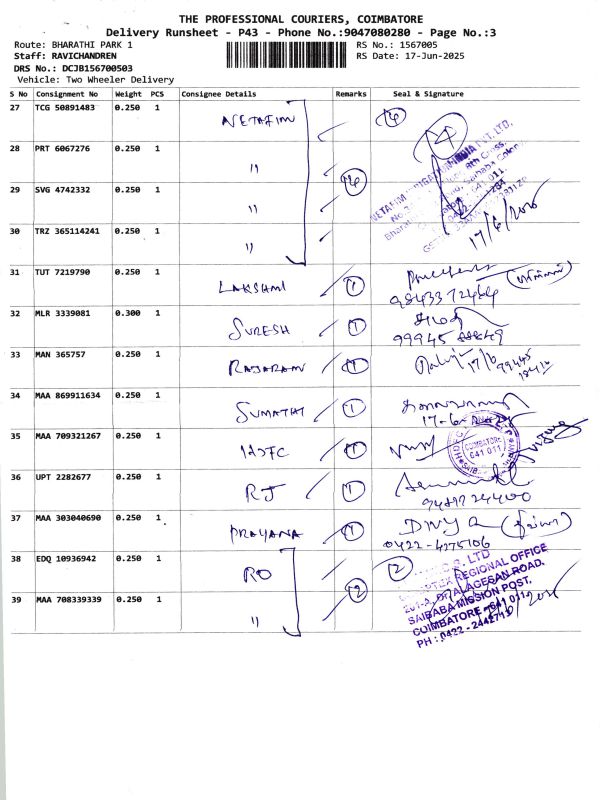 THE PROFESSIONAL COURIERS, COIMBATORE
Delivery Runsheet - P43 - Phone No.:9047080280 - Page No.:3
Route: BHARATHI PARK 1
RS No.: 1567005
Staff: RAVICHANDREN
RS Date: 17-Jun-2025
DRS No.: DCJB156700503
Vehicle: Two Wheeler Delivery
S No Consignment No Weight PCS Consignee Details Remarks Seal & Signature
27 TCG 50891483 0.250 1 NETAFIM 4 4
28 PRT 6067276 0.250 1 "
29 SVG 4742332 0.250 1 " 4
30 TRZ 365114241 0.250 1 " 17/6/2025
31 TUT 7219790 0.250 1 LAKSHMI 1
32 MLR 3339081 0.300 1 SURESH 1
99945 88849
33 MAN 365757 0.250 1 RAJARAM 1 17/6 99445
34 MAA 869911634 0.250 1 SUMATHI 1
35 MAA 709321267 0.250 1 HDFC 1
COIMBATORE
641 011
36 UPT 2282677 0.250 1 RJ 1
37 MAA 303040690 0.250 1 PRAYANA 1 DIVYA
0422-4275106
38 EDQ 10936942 0.250 1 RO 2
39 MAA 708339339 0.250 1 " 2
LTD
REGIONAL OFFICE
ALAGESAN ROAD,
SAIBABA MISSION POST,
COIMBATORE - 641 011
PH : 0422 -